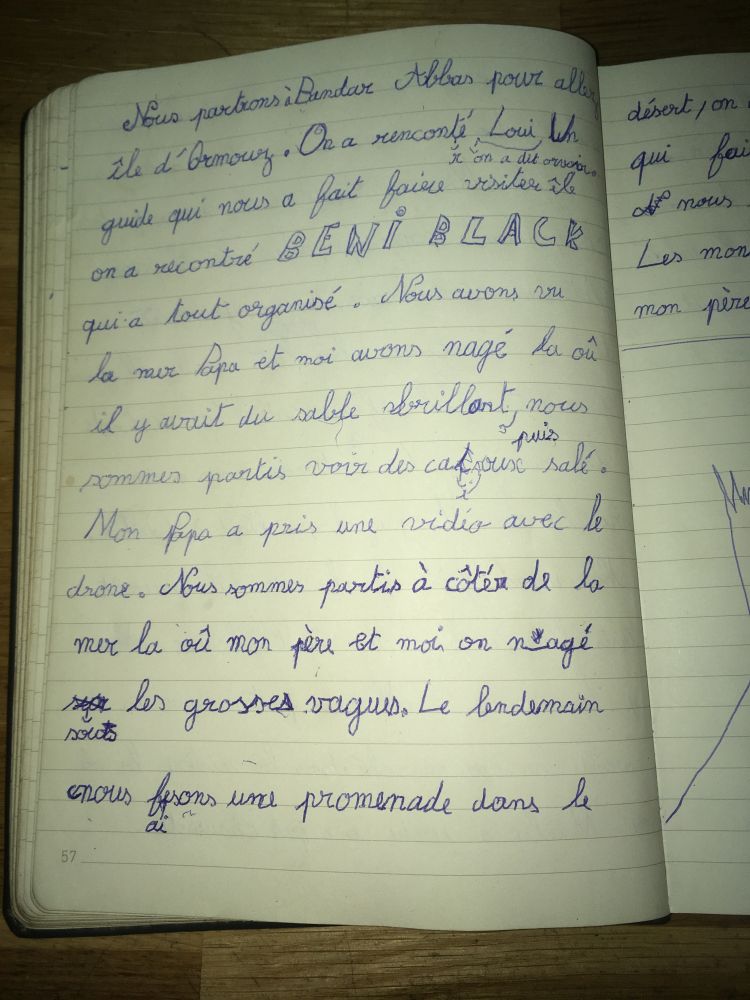 Nous partrons à Bandar Abbas pour aller
île d'Ormouz. On a renconté Loui Un
on a dit
guide qui nous a fait faire visiter île
on a recontré BENi BLACK
qui a tout organisé. Nous avons vu
la mer Papa et moi avons nagé la où
il y avait du sable brillant, nous
puis
sommes partis voir des salé.
Mon Papa a pris une vidéo avec le
drone. Nous sommes partis à côté de la
mer la où mon père et moi on nagé
les grosses vagues. Le lendemain
sous
nous fesons une promenade dans le
ai
57
désert, on
qui fai
nous
Les mon
mon père